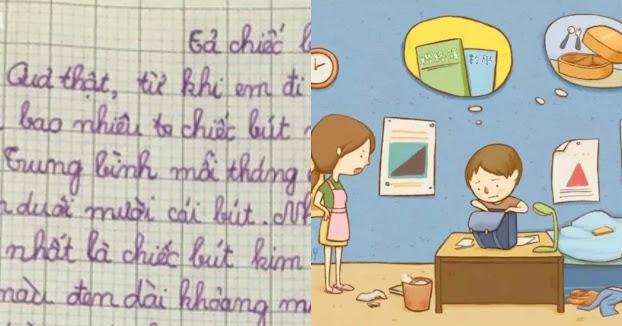 Tả chiếc
Quả thật, từ khi em đi
bao nhiêu to chiếc bút
Trung bình mỗi tháng
dưới mười cái bút.
nhất là chiếc bút kim
màu đen dài khoảng
聯絡簿